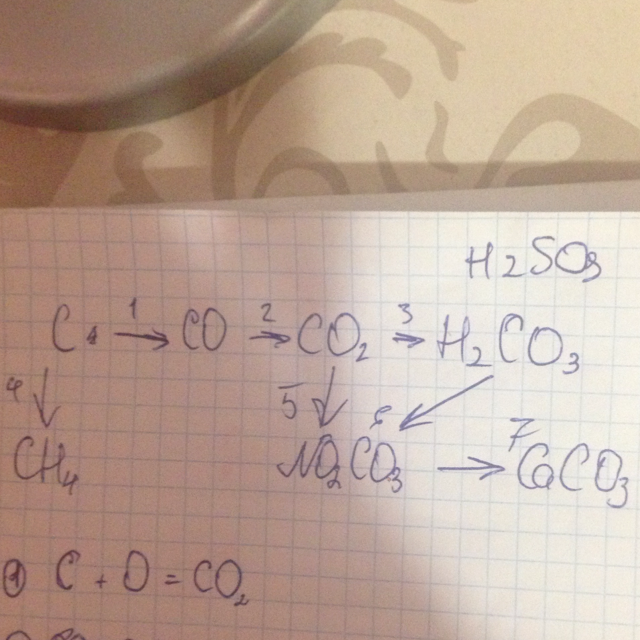 H2SO3
C → 1 CO → 2 CO2 → 3 H2CO3
4 ↓ 5 ↓ 6 ↙
CH4 Na2CO3 → 7 CaCO3
1 C + O = CO2